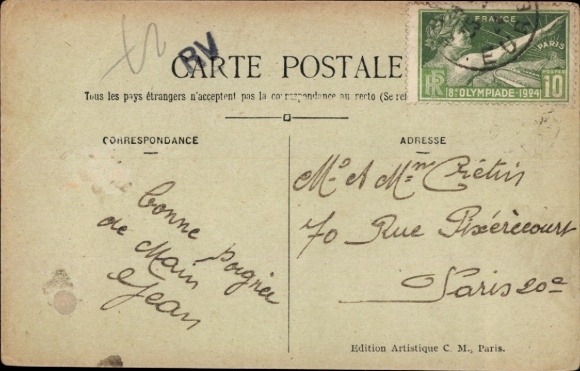 RV
FRANCE
PARIS
RF
POSTES 10
8e OLYMPIADE-1924
CARTE POSTALE
Tous les pays étrangers n'acceptent pas la correspondance au recto (Se
CORRESPONDANCE
ADRESSE
Bonne poignée
de Main
Jean
Mr et Mme
70 Rue Pixérécourt
Paris 20e
Edition Artistique C. M., Paris.